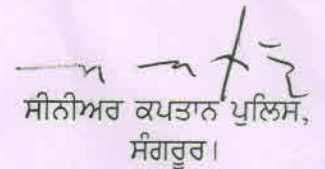 ਸੀਨੀਅਰ ਕਪਤਾਨ ਪੁਲਿਸ,
ਸੰਗਰੂਰ।